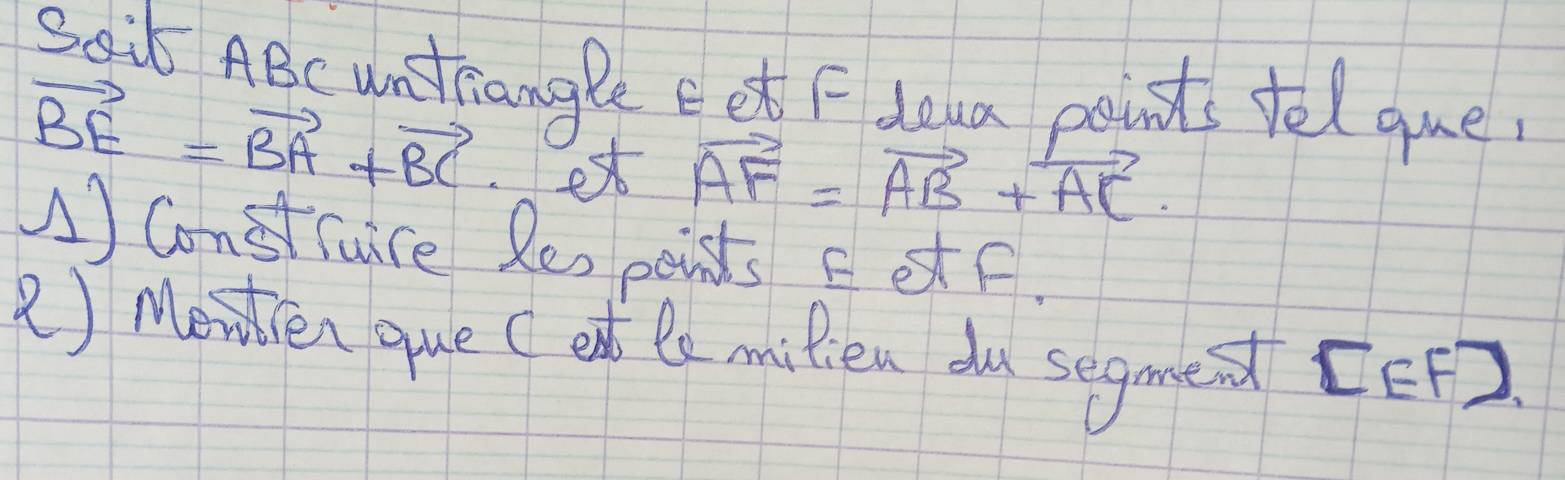 Soit ABC un triangle E et F deux points tel que,
$\overrightarrow{BE} = \overrightarrow{BA} + \overrightarrow{BC}$. et $\overrightarrow{AF} = \overrightarrow{AB} + \overrightarrow{AC}$.
1) Construire les points E et F.
2) Montrer que C est le milieu du segment [EF].